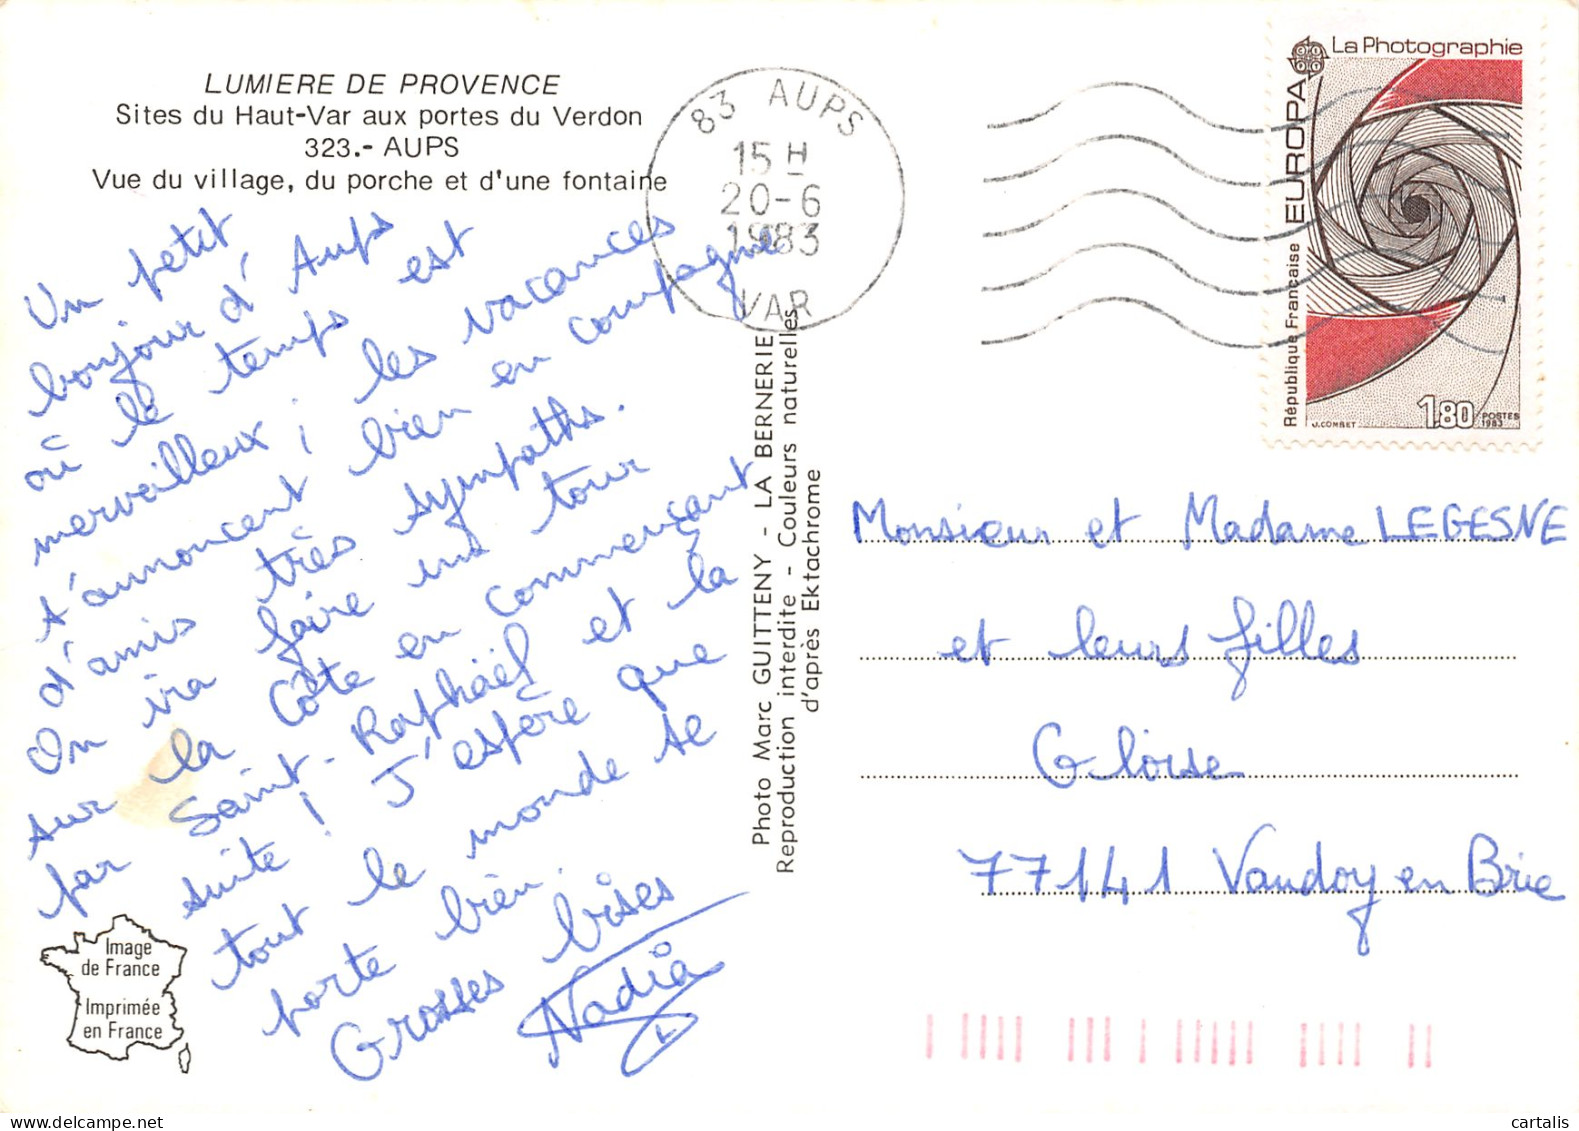 LUMIERE DE PROVENCE
Sites du Haut-Var aux portes du Verdon
323.- AUPS
Vue du village, du porche et d'une fontaine
Un petit
bonjour d'Aups
où le temps est
merveilleux ; les vacances
s'annoncent bien en compagnie
d'amis très sympaths.
On ira faire un tour
sur la Côte en commençant
par Saint-Raphaël et la
suite ! J'espère que
tout le monde se
porte bien.
Grosses bises
Nadia
Image
de France
Imprimée
en France
Photo Marc GUITTENY - LA BERNERIE
Reproduction interdite - Couleurs naturelles
d'après Ektachrome
83 AUPS
15 H
20-6
1983
VAR
La Photographie
EUROPA
République Française
1,80
POSTES
1983
J.COMBET
Monsieur et Madame LEGESNE
et leurs filles
Gloise
77141 Vaudoy en Brie
www.delcampe.net
cartalis